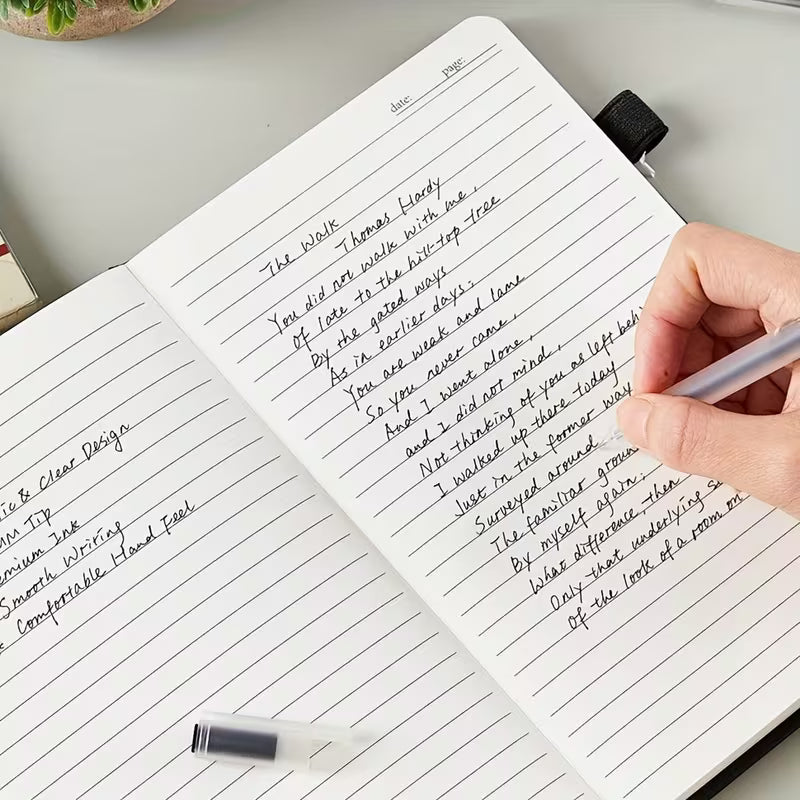 ic & Clear Design
Tip
emium Ink
Smooth Writing
Comfortable Hand Feel
date:
page:
The Walk
Thomas Hardy
You did not walk with me,
Of late to the hill-top tree
By the gated ways
As in earlier days:
You are weak and lame
So you never came,
And I went alone,
and I did not mind,
Not thinking of you as left behi
I walked up there today
Just in the former way
Surveyed around
The familiar groun
By myself again:
What difference, then
Only that underlying se
Of the look of a room on